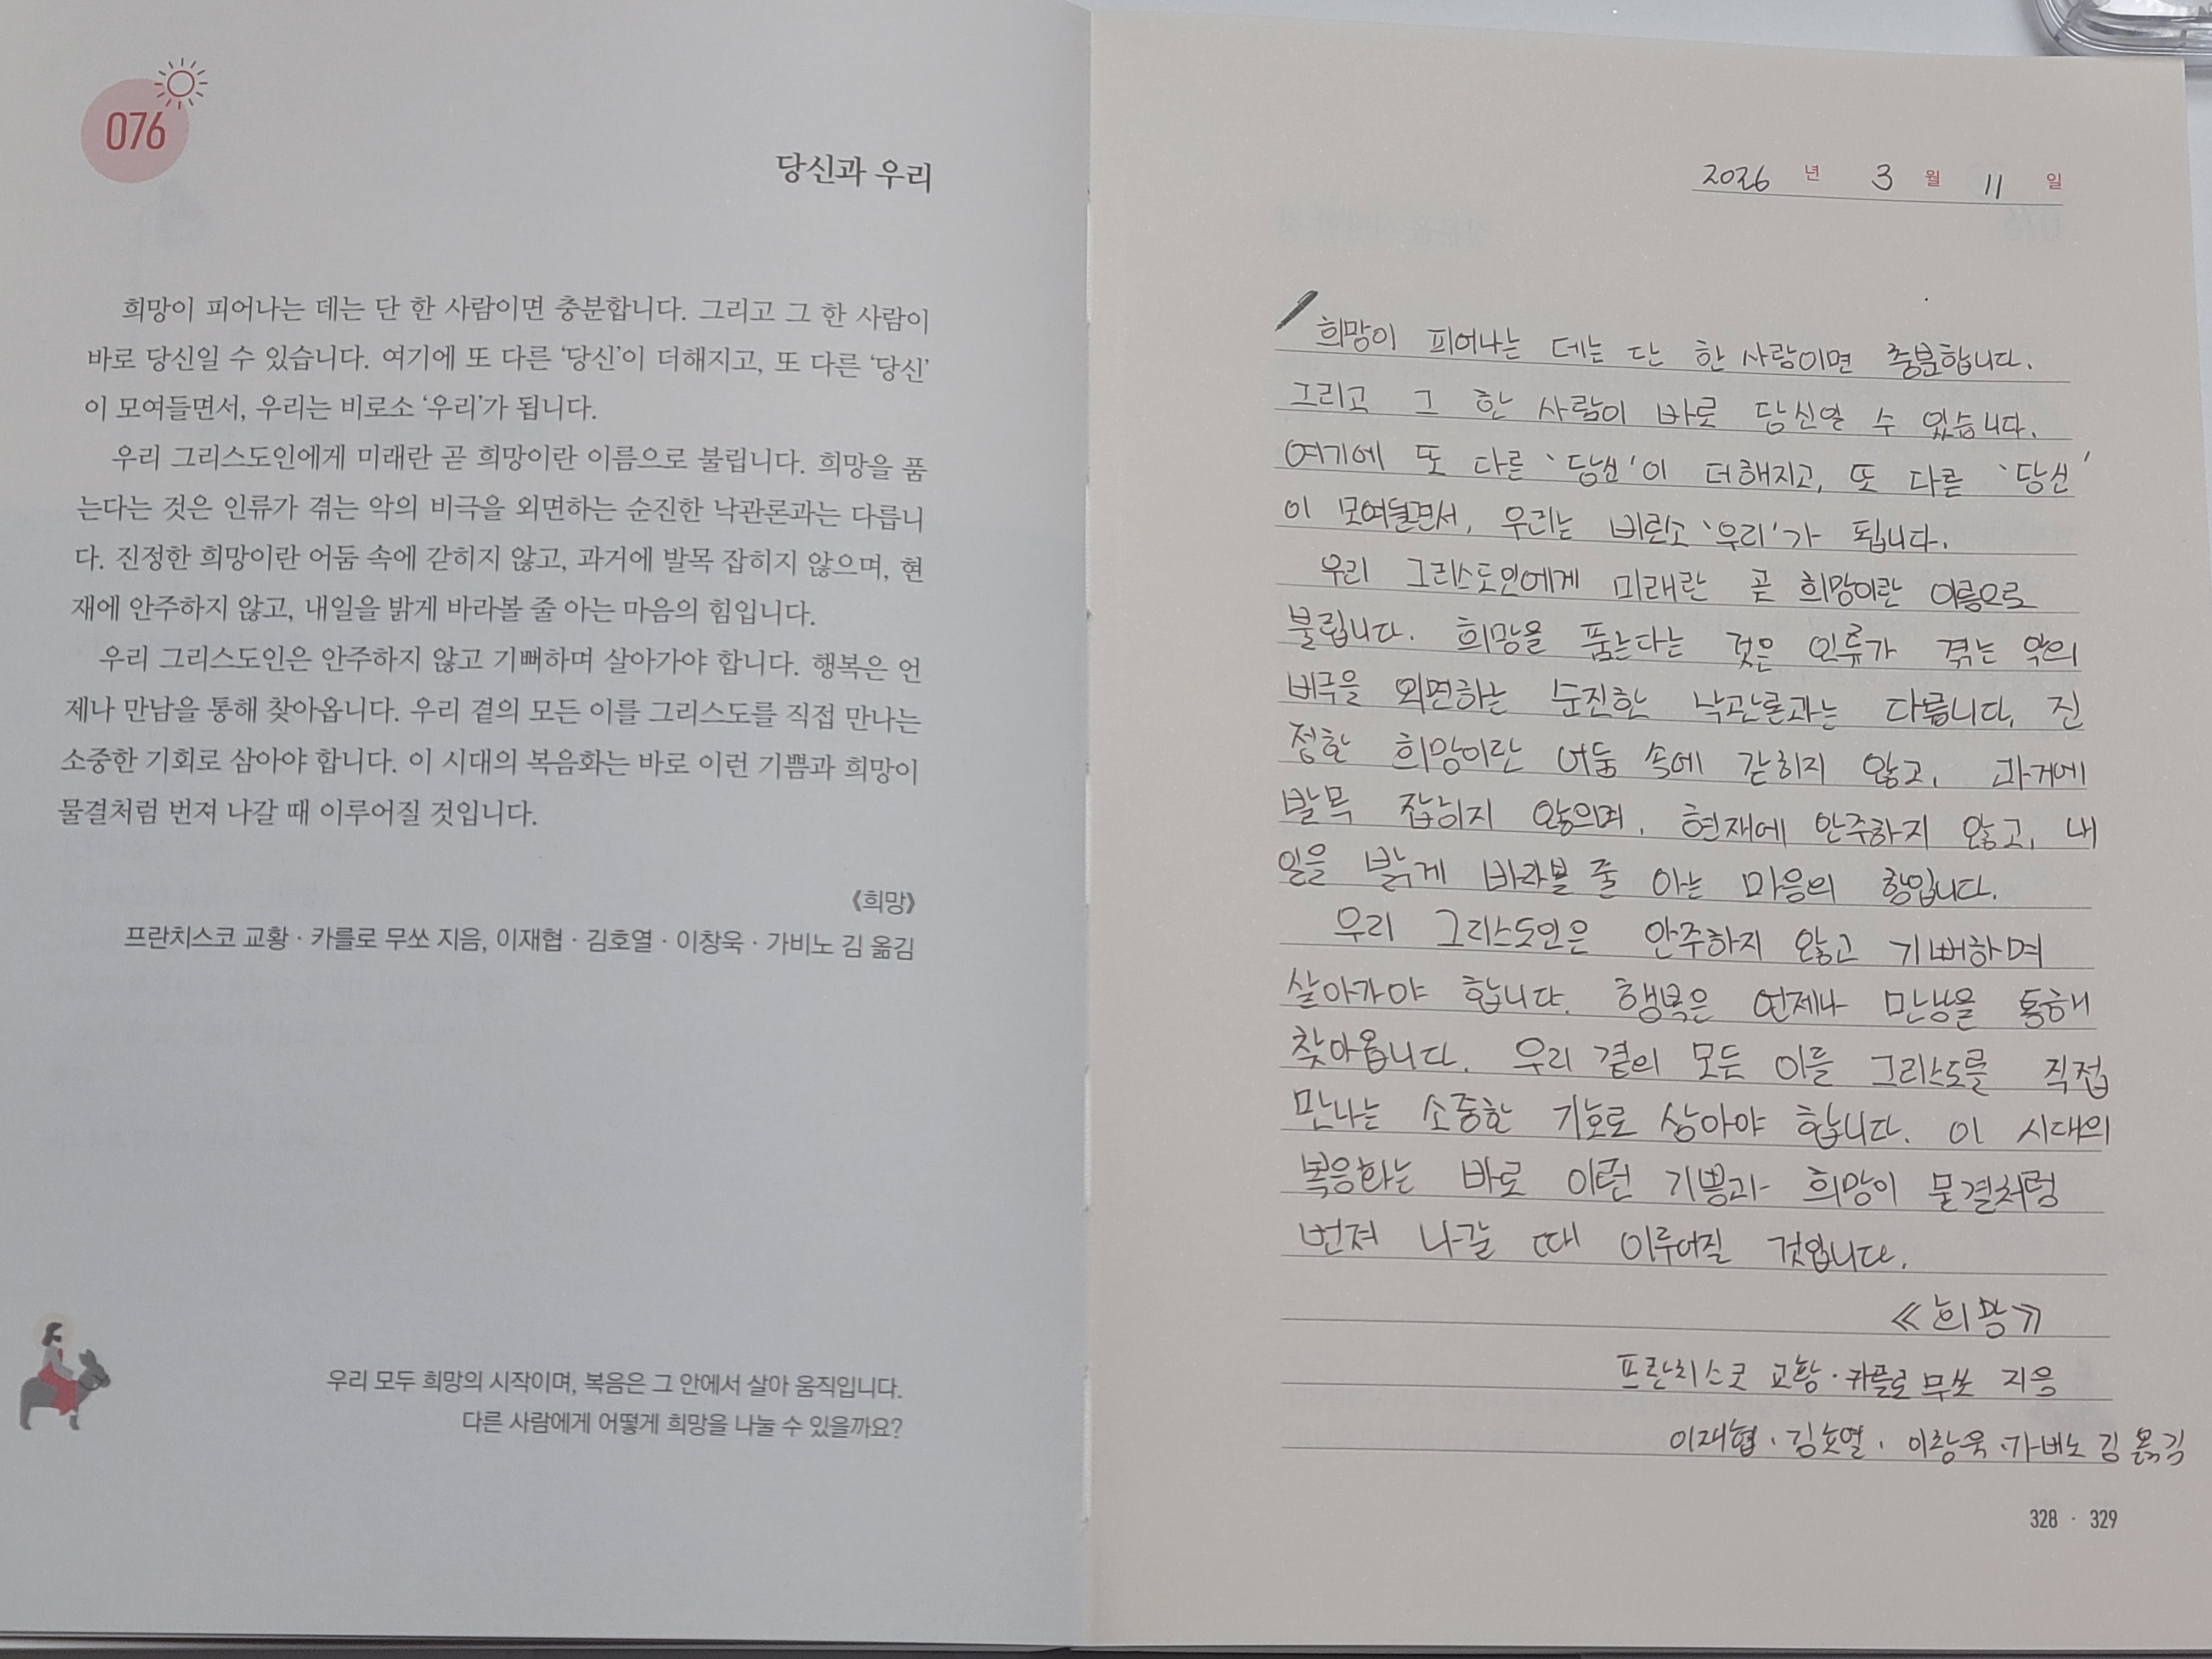 076
당신과 우리
희망이 피어나는 데는 단 한 사람이면 충분합니다. 그리고 그 한 사람이
바로 당신일 수 있습니다. 여기에 또 다른 ‘당신’이 더해지고, 또 다른 ‘당신’
이 모여들면서, 우리는 비로소 ‘우리’가 됩니다.
우리 그리스도인에게 미래란 곧 희망이란 이름으로 불립니다. 희망을 품
는다는 것은 인류가 겪는 악의 비극을 외면하는 순진한 낙관론과는 다릅니
다. 진정한 희망이란 어둠 속에 갇히지 않고, 과거에 발목 잡히지 않으며, 현
재에 안주하지 않고, 내일을 밝게 바라볼 줄 아는 마음의 힘입니다.
우리 그리스도인은 안주하지 않고 기뻐하며 살아가야 합니다. 행복은 언
제나 만남을 통해 찾아옵니다. 우리 곁의 모든 이를 그리스도를 직접 만나는
소중한 기회로 삼아야 합니다. 이 시대의 복음화는 바로 이런 기쁨과 희망이
물결처럼 번져 나갈 때 이루어질 것입니다.
《희망》
프란치스코 교황 · 카를로 무쏘 지음, 이재협 · 김호열 · 이창욱 · 가비노 김 옮김
우리 모두 희망의 시작이며, 복음은 그 안에서 살아 움직입니다.
다른 사람에게 어떻게 희망을 나눌 수 있을까요?
2026 년 3 월 11 일
희망이 피어나는 데는 단 한 사람이면 충분합니다.
그리고 그 한 사람이 바로 당신일 수 있습니다.
여기에 또 다른 ‘당신’이 더해지고, 또 다른 ‘당신’
이 모여들면서, 우리는 비로소 ‘우리’가 됩니다.
우리 그리스도인에게 미래란 곧 희망이란 이름으로
불립니다. 희망을 품는다는 것은 인류가 겪는 악의
비극을 외면하는 순진한 낙관론과는 다릅니다. 진
정한 희망이란 어둠 속에 갇히지 않고, 과거에
발목 잡히지 않으며, 현재에 안주하지 않고, 내
일을 밝게 바라볼 줄 아는 마음의 힘입니다.
우리 그리스도인은 안주하지 않고 기뻐하며
살아가야 합니다. 행복은 언제나 만남을 통해
찾아옵니다. 우리 곁의 모든 이를 그리스도를 직접
만나는 소중한 기호로 삼아야 합니다. 이 시대의
복음화는 바로 이런 기쁨과 희망이 물결처럼
번져 나갈 때 이루어질 것입니다.
《희망》
프란치스코 교황 · 카를로 무쏘 지음
이재협 · 김호열 · 이창욱 · 가비노 김 옮김
328 · 329